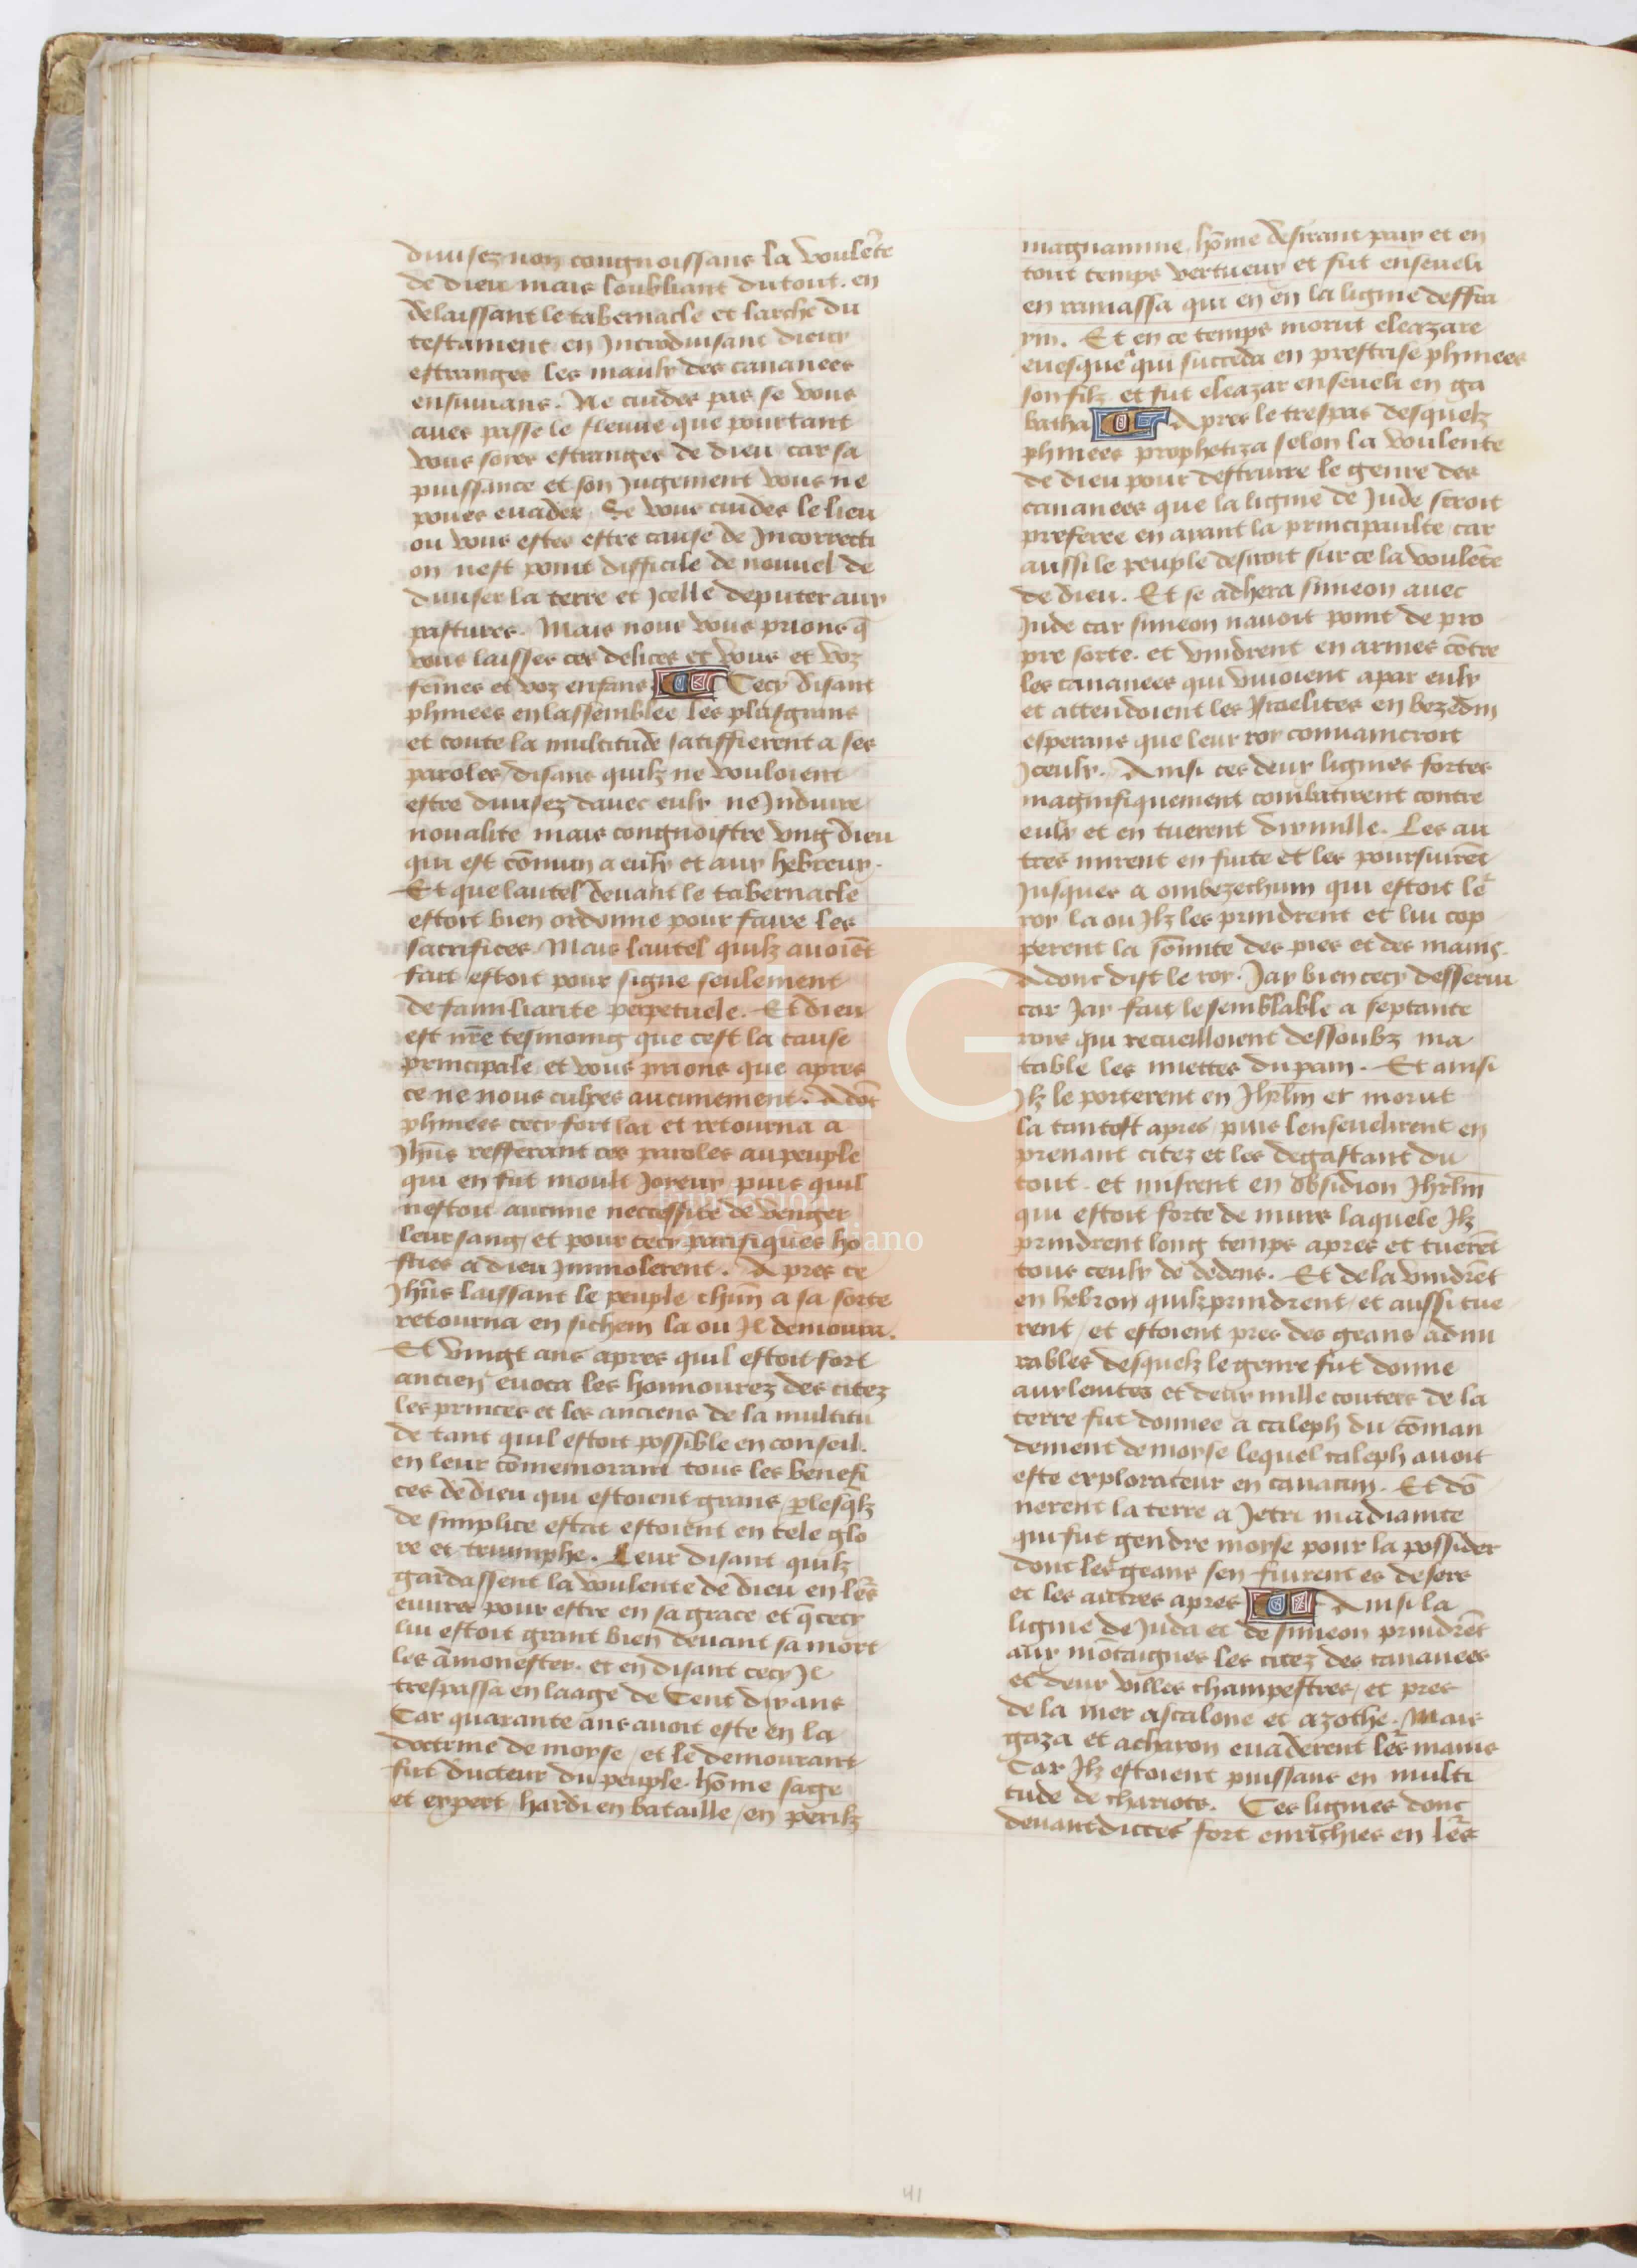 diuisez non congnoissans la voulēte
de dieu mais loubliant du tout. en
delaissant le tabernacle et larche du
testament en Introduisant dieux
estranges les maulx des cananees
ensuiuans. Ne cuides pas se vous
aues passe le fleuue que pourtant
vous soies estranges de dieu car sa
puissance et son Jugement vous ne
poues euader. Se vous cuides le lieu
ou vous estes estre cause de Incorrecti
on nest point difficile de nouuel de
diuiser la terre et Jcelle deputer aux
pastures. Mais nous vous prions q̄
vous laisses ces delices et vous et voz
fēmes et voz enfans Cecy disant
phinees en lassemblee les plusgrans
et toute la multitude satiffierent a ses
paroles / disans quilz ne vouloient
estre diuisez dauec eulx ne Induire
noualite mais congnoistre vng dieu
qui est cōmun a eulx et aux hebreux.
Et que lautel deuant le tabernacle
estoit bien ordonne pour faire les
sacrifices. Mais lautel quilz auoiēt
fait estoit pour signe seulement
de familiarite perpetuele. Et dieu
est nr̄e tesmoing que cest la cause
principale et vous prions que apres
ce ne nous culpes aucunement. Adōc
phinees cecy fort loa et retourna a
Jhūs refferant ces paroles au peuple
qui en fut moult Joyeux puis quil
nestoit aucune neccessite de venger
leur sang / et pour cecy pacifiques ho
sties a dieu Immolerent. Apres ce
Jhūs laissant le peuple chūn a sa sorte
retourna en sichem la ou Jl demoura.
Et vingt ans apres quil estoit fort
ancien euoca les honnourez des citez
les princes et les anciens de la multitu
de tant quil estoit possible en conseil.
en leur cōmemorant tous les benefi
ces de dieu qui estoient grans / p̱lesq̄lz
de simplice estat estoient en tele glo
re et triumphe. Leur disant quilz
gardassent la voulente de dieu en lēs
euures pour estre en sa grace et q̄ cecy
lui estoit grant bien deuant sa mort
les āmonester. et en disant cecy Jl
trespassa en laage de Cent dix ans
Car quarante ans auoit este en la
doctrine de moyse / et le demourant
fut ducteur du peuple. hōme sage
et expert hardi en bataille / en perilz
magnanime. hōme desirant paix et en
tout temps vertueux et fut enseueli
en ramassa qui en en la lignie deffra
ym. Et en ce temps morut eleazare
euesque qui succeda en prestrise phinees
son filz et fut eleazar enseueli en ga
batha Apres le trespas desquelz
phinees prophetiza selon la voulente
de dieu pour destruire le genre des
cananees que la lignie de Jude seroit
preferee en aiant la principaulte car
aussi le peuple desiroit sur ce la voulēte
de dieu. Et se adhera simeon auec
Jude car simeon nauoit point de pro
pre sorte. et vindrent en armes cōtre
les cananees qui viuoient apar eulx
et attendoient les Jsraelites en bezedin
esperans que leur roy conuaincroit
Jceulx. Ainsi ces deux lignies fortes
magnifiquement combatirent contre
eulx et en tuerent dix mille. Les au
tres mirent en fuite et les poursuirēt
Jusques a ombezechum qui estoit le
roy la ou Jlz les prindrent et lui cop
perent la sōmite des pies et des mains.
Adonc dist le roy. Jay bien cecy desserui
car Jay fait le semblable a septante
rois qui recueilloient dessoubz ma
table les miettes du pain. Et ainsi
Jlz le porterent en Jhrl̄m et morut
la tantost apres / puis lenseuelirent en
prenant citez et les degastant du
tout. et misrent en obsidion Jhrl̄m
qui estoit forte de murs laquele Jlz
prindrent long temps apres et tuerēt
tous ceulx de dedens. Et de la vindrēt
en hebron quilz prindrent / et aussi tue
rent / et estoient pres des geans admi
rables desquelz le genre fut donne
aux leuites et deux mille coutees de la
terre fut donnee a caleph du cōman
dement de moyse lequel caleph auoit
este explorateur en canaam. Et dō
nerent la terre a Jetri madianite
qui fut gendre moyse pour la possider
dont les geans sen fuirent es desers
et les autres apres Ainsi la
lignie de Juda et de simeon prindrēt
aux mōtaignes les citez des cananees
et deux villes champestres / et pres
de la mer ascalone et azothe. Mais
gaza et acharon euaderent lēs mains
Car Jlz estoient puissans en multi
tude de chariots. Ces lignies donc
deuantdictes fort enrichies en lēs
41